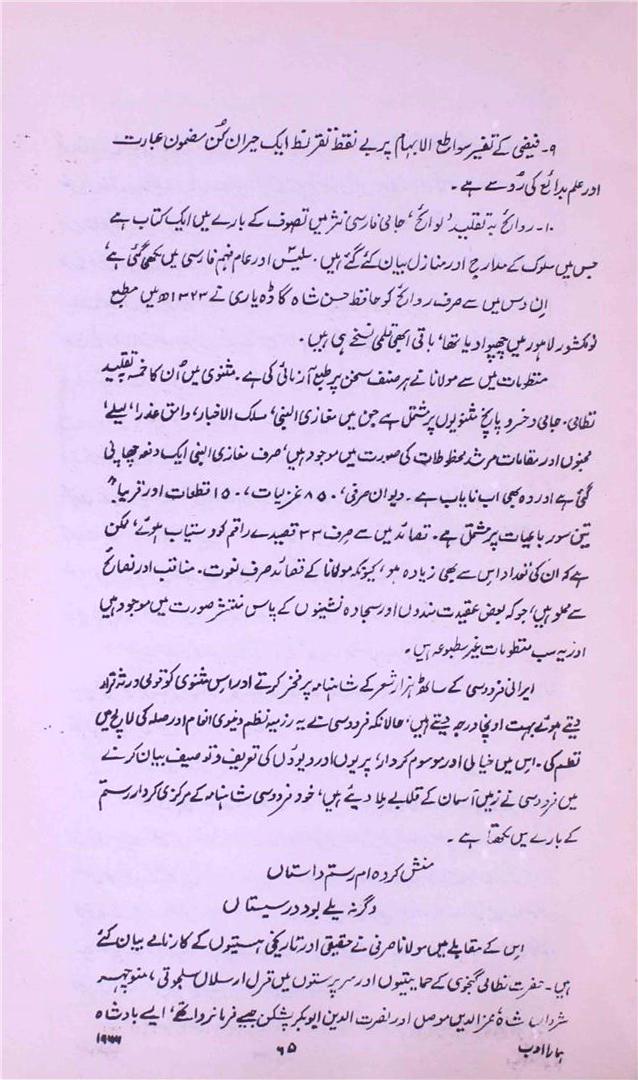 ۹۔ فیضی کے تفیر سواطع الابہام پر بے نقط تقرئظ ایک حیران کُن مضمون عبارت
اور علم بدائع کی رُو سے ہے۔
۱۰۔ روائح بہ تقلید ’لوائح‘ جامی فارسی نثر میں تصوف کے بارے میں ایک کتاب ہے
جس میں سلوک کے مدارج اور منازل بیان کئے گئے ہیں۔ سلیس اور عام فہم فارسی میں لکھی گئی ہے‘
اِن دس میں سے صرف روائح کو حافظ حسن شاہ گاڈہ یاری نے ۱۳۲۳ھ میں مطبع
نولکشور لاہور میں چھپوا دیا تھا‘ باقی ابھی قلمی نسخے ہی ہیں۔
منظومات میں سے مولانا نے ہر صنف سخن پر طبع آزمائی کی ہے۔ مثنوی میں اُن کا خمسہ بہ تقلید
نظامی۔ جامی و خسرو پانچ مثنویوں پر مشتمل ہے جن میں مغازی النبی‘ سلک الاخبار‘ وامق عذرا‘ لیلے‘
مجنوں اور مقامات مرشد مخطوطات کی صورت میں موجود ہیں‘ صرف مغازی النبی ایک دفعہ چھاپی
گئی ہے اور وہ بھی اب نایاب ہے۔ دیوان صرفی‘ ۸۵۰ غزلیات‘ ۱۵۰ قطعات اور قریباً
تین سو رباعیات پر مشتمل ہے۔ قصائد میں سے صرف ۳۳ قصیدے راقم کو دستیاب ہوئے‘ ممکن
ہے کہ ان کی تعداد اس سے بھی زیادہ ہو‘ کیونکہ مولانا کے قصائد صرف نعوت۔ مناقب اور نصائح
سے مملو ہیں‘ جو کہ بعض عقیدت مندوں اور سجادہ نشینوں کے پاس منتشر صورت میں موجود ہیں
اور یہ سب منظومات غیر مطبوعہ ہیں۔
ایرانی فردوسی کے ساٹھ ہزار شعر کے شاہنامہ پر فخر کرتے اور اس مثنوی کو قومی ورثہ قرار
دیتے ہوئے بہت اونچا درجہ دیتے ہیں‘ حالانکہ فردوسی نے یہ رزمیہ نظم دنیوی انعام اور صلہ کی لالچ میں
نظم کی۔ اس میں خیالی اور موسوم کردار‘ پریوں اور دیووں کی تعریف و توصیف بیان کرنے
میں فردوسی نے زمین آسمان کے قلابے ملا دیئے ہیں‘ خود فردوسی شاہنامہ کے مرکزی کردار رستم
کے بارے میں لکھتا ہے۔
منش کردہ ام رستم داستاں
وگرنہ یلے بود در سیستاں
اس کے مقابلے میں مولانا صرفی نے حقیقی اور تاریخی ہستیوں کے کارنامے بیان کئے
ہیں۔ حضرت نظامی گنجوی کے حمایتیوں اور سرپرستوں میں قزل ارسلان سلجوقی‘ منوچہر
شرواں شاہ عزالدین موصل اور نصرت الدین ابوبکر پشکن جیسے فرمانروا تھے‘ ایسے بادشاہ
ہمارا ادب ۶۵ ۱۹۶۶